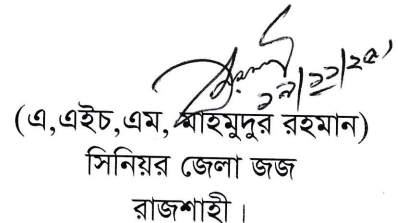 ১৯/১১/২৫
(এ,এইচ,এম, মাহমুদুর রহমান)
সিনিয়র জেলা জজ
রাজশাহী।